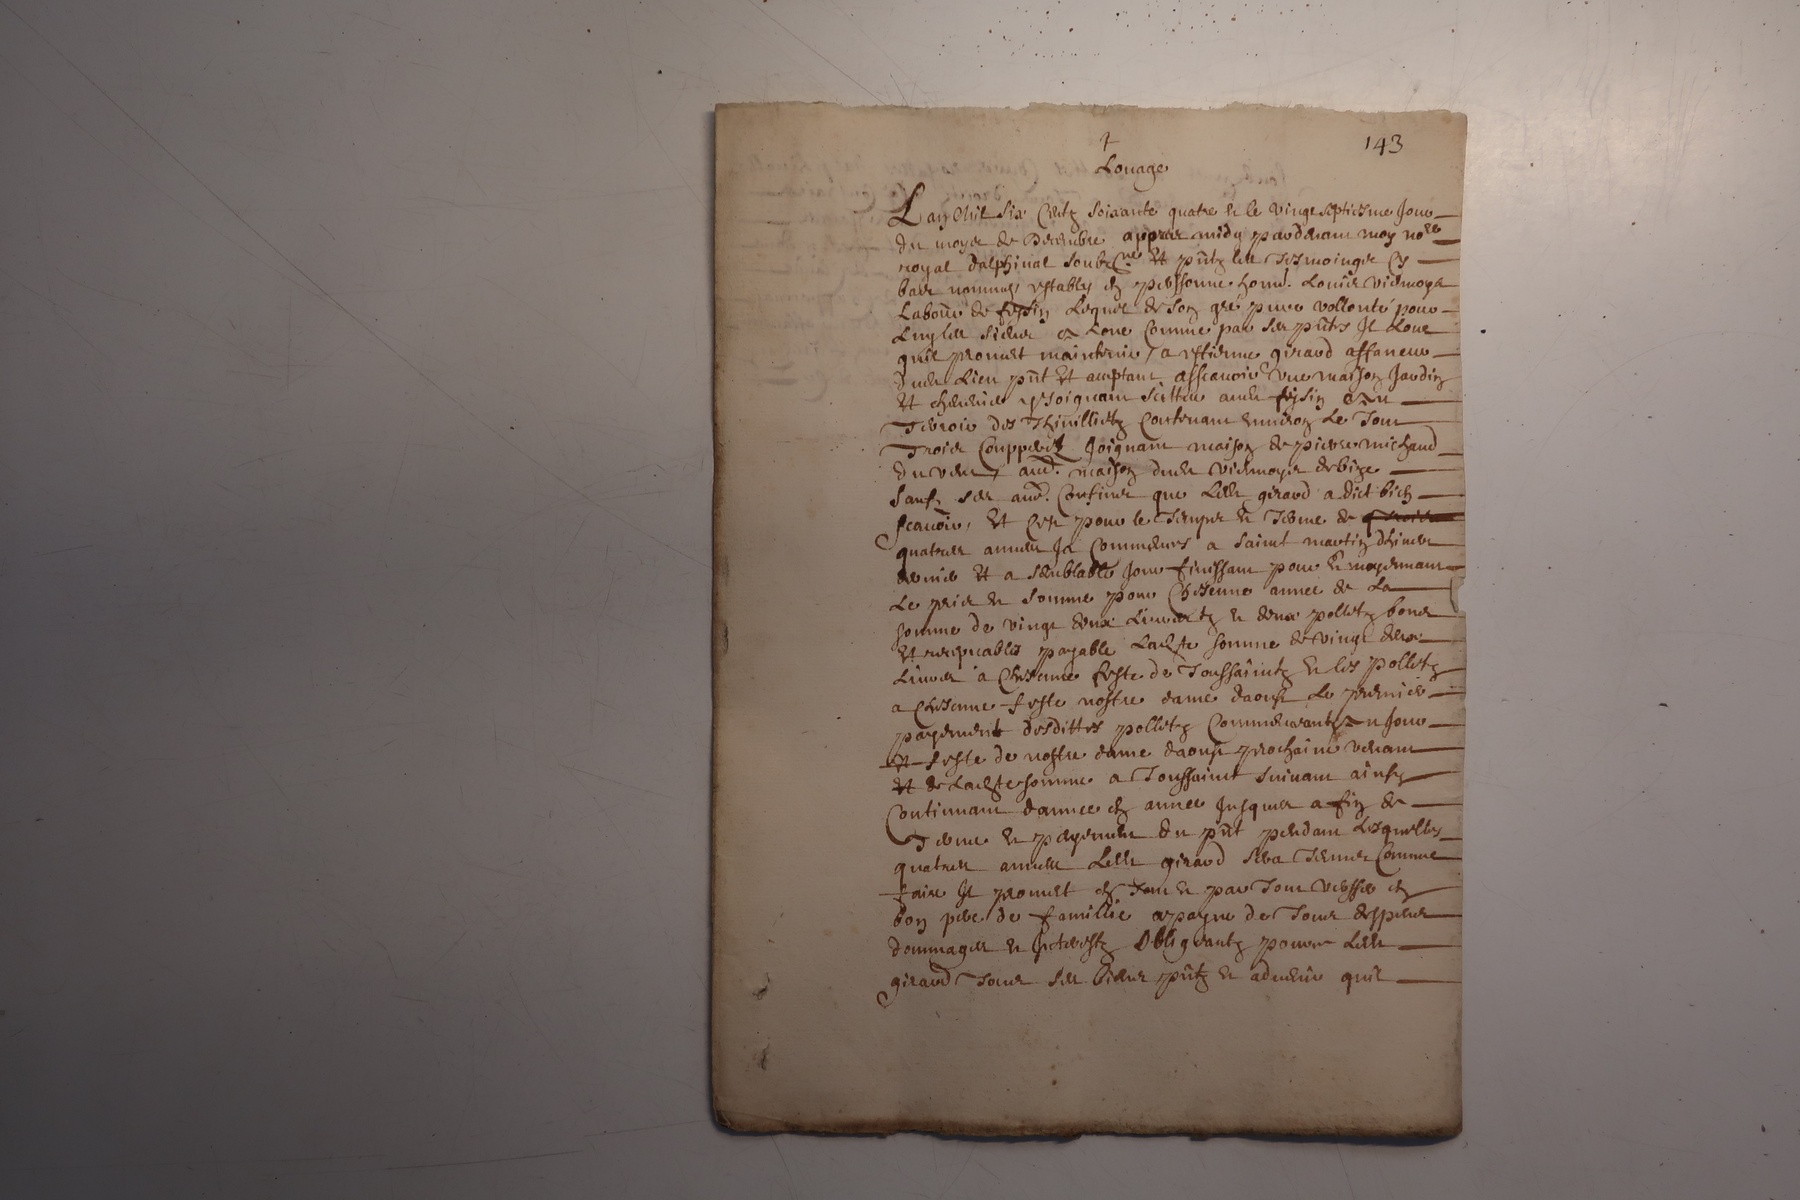 143
Louage
Lan Mil Six Centz soixante quatre et le vingt septiesme Jour
du moys de Decembre appres midy pardevant moy nore
royal dalphinal soubzne et pntz les tesmoingz cy
bas nommes estably en personne honn. Louis Vidmoys
Labour de feysin Lequel de son gre pure vollonte pour
Luy les siens a Loue comme par ses pnts Il Loue
quil promet maintenir / a estienne girard affaneur
dudt Lieu pnt et acceptant asscavoir une maison Jardin
et joignant scittue audt feysin
Terroir des contenant environ le tout
Trois Couppees Joignant maison de pierre michaud
du vent aud. maison dudt Vidmoys de bize
sauf ses aud. Confines que Ledt girard a dict bien
scavoir, Et Cest pour le temps et terme de
quatres annees Ja Commences a saint martin dhiver
dernier et a semblable Jour finissant pour et moyennant
Le prix et somme pour Chescune annee de La
somme de vingt deux Livres et deux polletz bons
et recepvables payable Ladte somme de vingt deux
Livres a Chescune feste de Toussaintz et les polletz
a Chescune feste nostre dame daoust Le premier
payement desdittes polletz Commencant au Jour
et feste de nostre dame daoust prochain venant
et de Ladte somme a Toussaint suivant ainsy
Continuant dannee en annee Jusques a fin de
Terme et payement du pnt pendant Lesquelles
quatres annees Ledt girard sera tenus Comme
faire Il promet en tout et par tout verser en
bon pere de famillie a payne de tous despens
dommages et Interestz Obligeantz pource Ledt
girard tous ses biens pntz et advenir quil